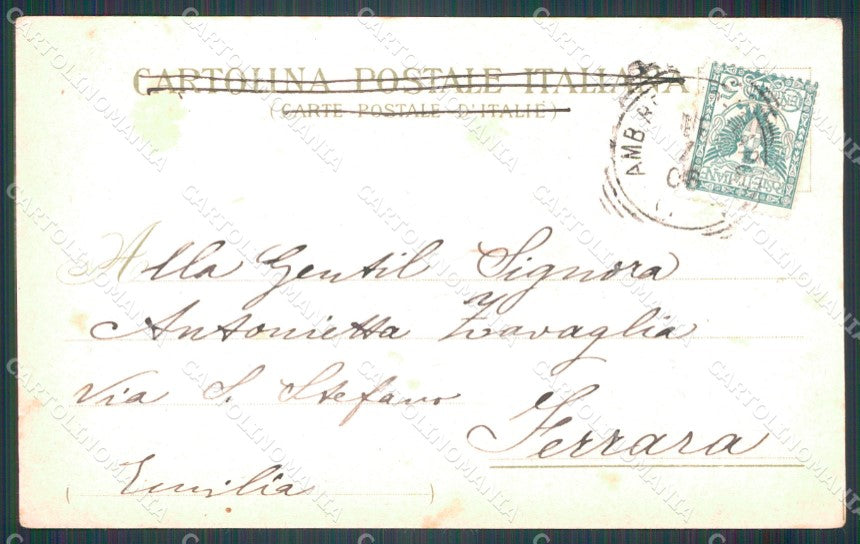 CARTOLINA POSTALE ITALIANA
(CARTE POSTALE D'ITALIE)
AMB.
06
Alla Gentil Signora
Antonietta Zavaglia
Via S. Stefano
Ferrara
Emilia
CARTOLINOMANIA